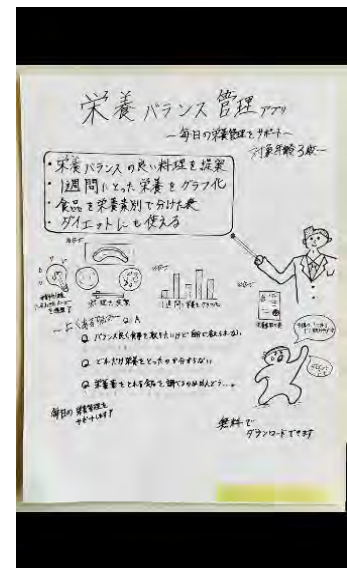 栄養バランス管理アプリ
〜毎日の栄養管理をサポート〜
対象年齢3歳〜
・栄養バランスの良い料理を提案
・1週間にとった栄養をグラフ化
・食品を栄養素別で分けた表
・ダイエットにも使える
Q&A
Q バランス良く食事を取りたいけど自分で考えられない
Q どれだけ栄養をとったのか分からない
Q 栄養素をとれる食品を調べるのがめんどう…。
毎日の栄養管理を
サポートします!
無料で
ダウンロードできます